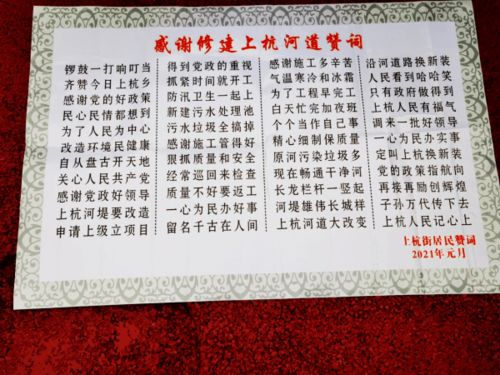 感谢修建上杭河道赞词
锣鼓一打响叮当
齐赞今日上杭乡
感谢党的好政策
民心民情都想到
为了人民为中心
改造环境民健康
自从盘古开天地
关心人民共产党
感谢党政好领导
上杭河堤要改造
申请上级立项目
得到党政的重视
抓紧时间就开工
防汛卫生一起上
新建污水处理池
污水垃圾全搞掉
感谢施工管得好
狠抓质量和安全
经常巡回来检查
质量不好要返工
一心为民办好事
留名千古在人间
感谢施工多辛苦
气温寒冷和冰霜
为了工程早完工
白天忙完加夜班
个个当作自己事
精心细制保质量
原河污染垃圾多
现在畅通干净河
长龙栏杆一竖起
河堤雄伟长城样
上杭河道大改变
沿河道路换新装
人民看到哈哈笑
只有政府做得到
上杭人民有福气
调来一批好领导
一心为民办实事
定叫上杭换新装
党的政策指航向
再接再励创辉煌
子孙万代传下去
上杭人民记心上
上杭街居民赞词
2021年元月